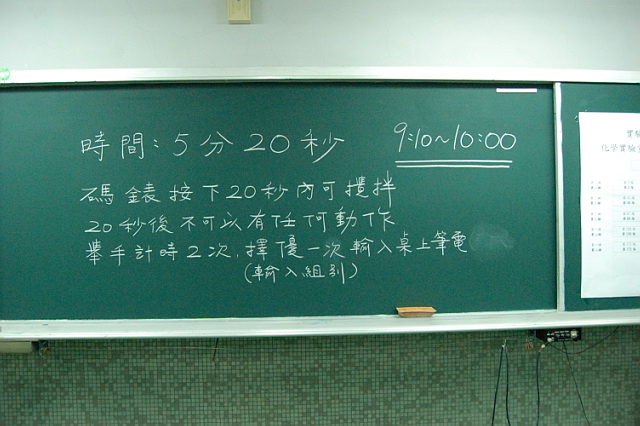 時間：5分20秒
9:10~10:00
碼錶按下20秒內可攪拌
20秒後不可以有任何動作
舉手計時2次，擇優一次輸入桌上筆電
(輸入組別)
實驗
化學實驗室